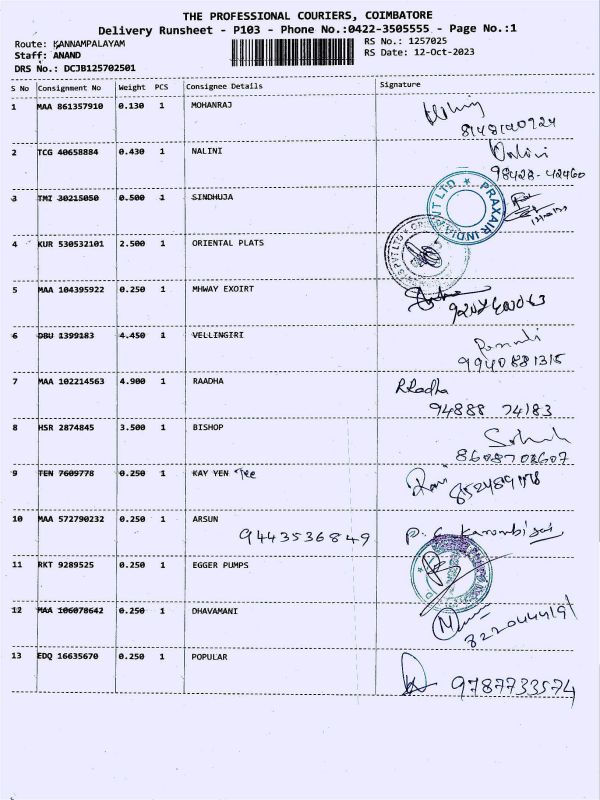 THE PROFESSIONAL COURIERS, COIMBATORE
Delivery Runsheet - P103 - Phone No.:0422-3505555 - Page No.:1
Route: KANNAMPALAYAM
RS No.: 1257025
Staff: ANAND
RS Date: 12-Oct-2023
DRS No.: DCJB125702501
S No Consignment No Weight PCS Consignee Details Signature
1 MAA 861357910 0.130 1 MOHANRAJ
2 TCG 40658884 0.430 1 NALINI
98428-42460
3 TMI 30215050 0.500 1 SINDHUJA
PRAXAIR INDIA PVT LTD
4 KUR 530532101 2.500 1 ORIENTAL PLATS
5 MAA 104395922 0.250 1 MHWAY EXOIRT
6 DBU 1399183 4.450 1 VELLINGIRI
9940881315
7 MAA 102214563 4.900 1 RAADHA
R.Radha
94888 74183
8 HSR 2874845 3.500 1 BISHOP
8608702607
9 TEN 7609778 0.250 1 KAY YEN Tee
10 MAA 572790232 0.250 1 ARSUN
9443536849
11 RKT 9289525 0.250 1 EGGER PUMPS
12 MAA 106078642 0.250 1 DHAVAMANI
8220444191
13 EDQ 16635670 0.250 1 POPULAR
9787733574